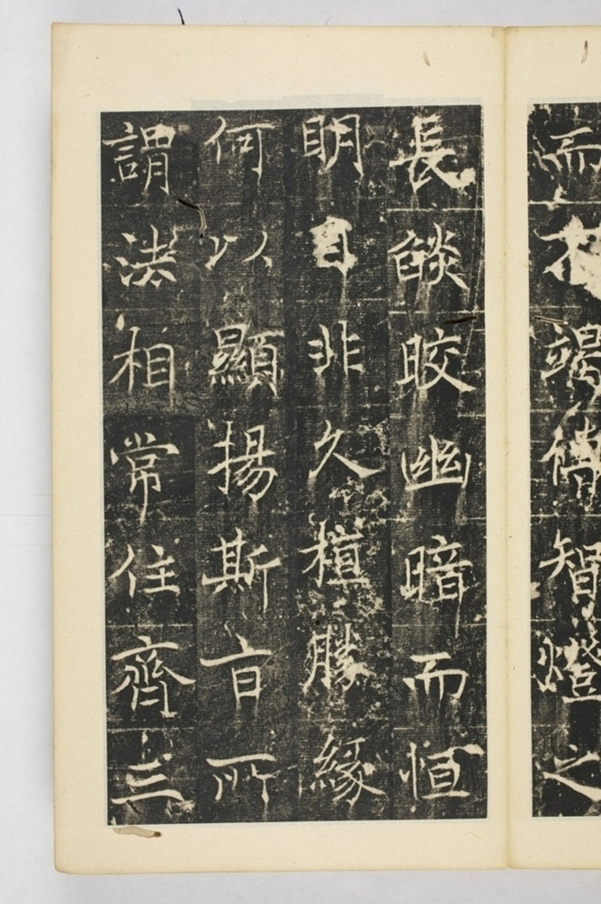 而不竭借智燈之
長燄皎幽暗而恒
明自非久植勝緣
何以顯揚斯旨所
謂法相常住齊三